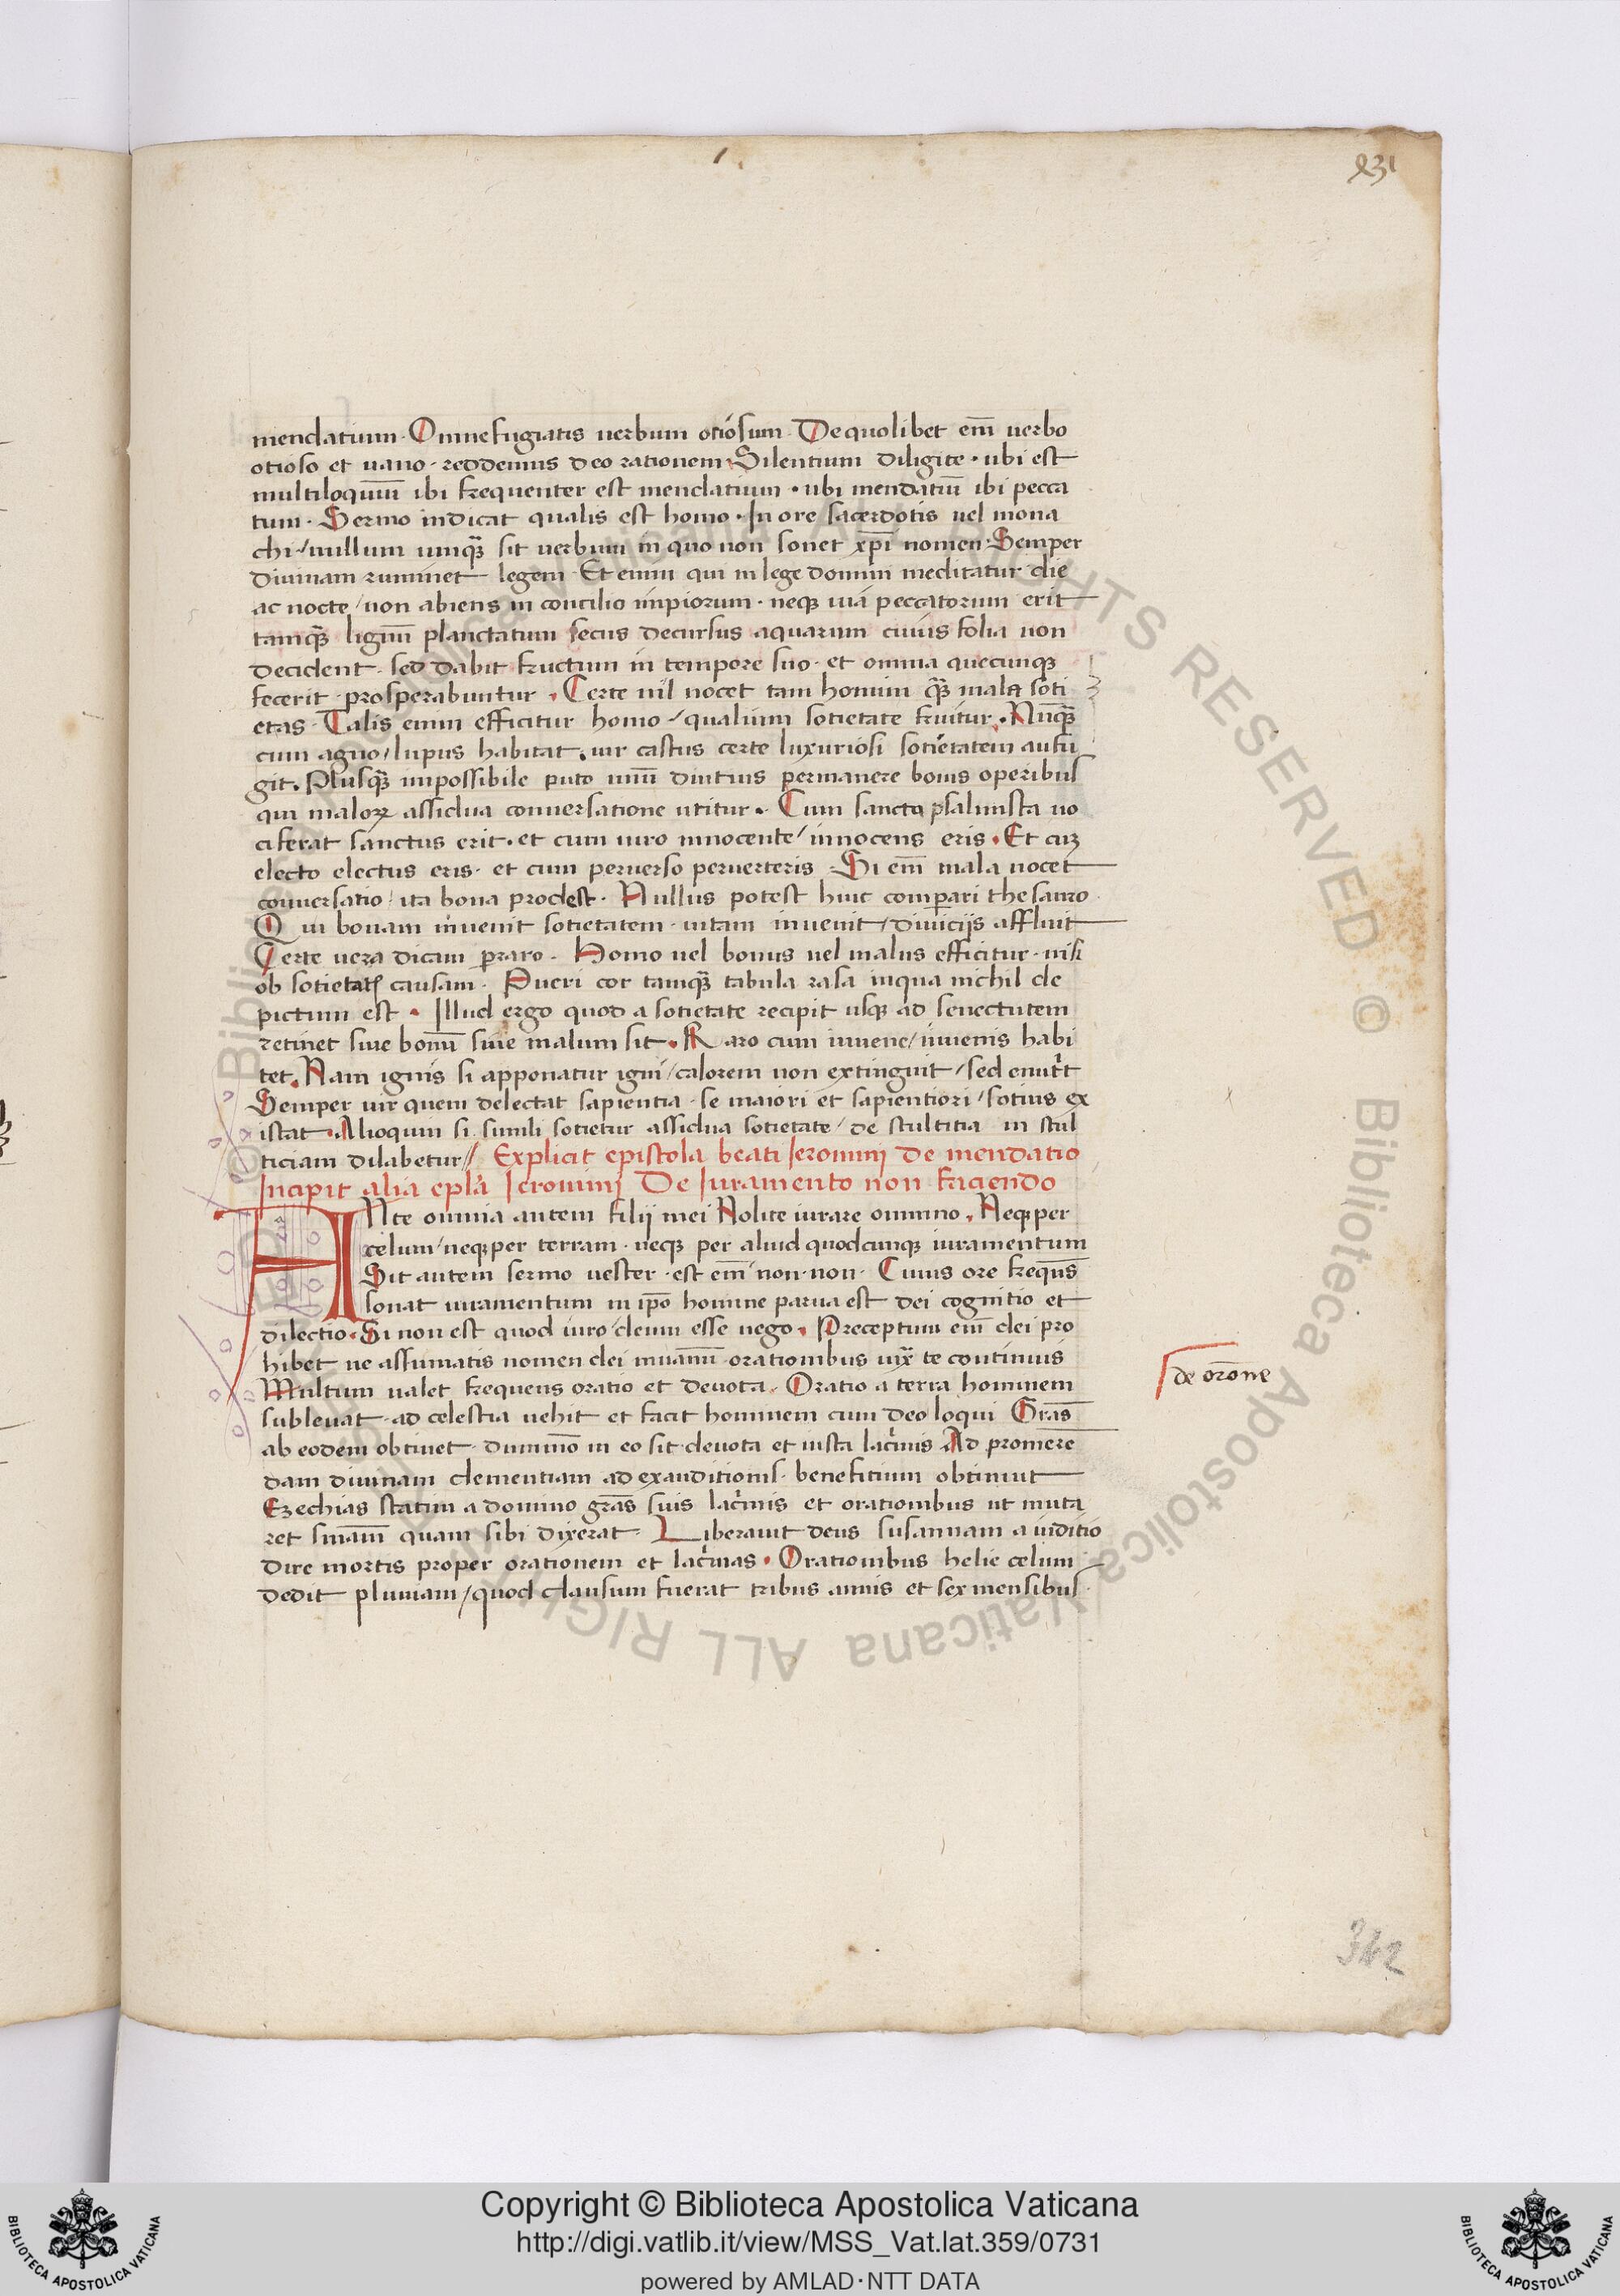 231
mendatium · Omne fugiatis uerbum otiosum · De quolibet em̅ uerbo
otioso et uano · reddemus deo rationem Silentium diligite · ubi est
multiloquiu̅ ibi frequenter est mendatium · ubi mendatiu̅ ibi pecca
tum · Sermo indicat qualis est homo · In ore sacerdotis uel mona
chi / nullum unqꝫ sit uerbum in quo non sonet xp̅i nomen · Semper
diuinam ruminet legem · Et enim qui in lege domini meditatur die
ac nocte / non abiens in concilio impiorum · neqꝫ uia̅ peccatorum erit
tamqꝫ lignu̅ planctatum secus decursus aquarum cuius folia non
decident · sed dabit fructum in tempore suo · et omnia quecunqꝫ
fecerit · prosperabuntur · Certe nil nocet tam homini qꝫ mala soti
etas · Talis enim efficitur homo / qualium sotietate fruitur · Nu̅qꝫ
cum agno / lupus habitat · uir castus certe luxuriosi sotietatem aufu
git · Plusqꝫ impossibile puto unu̅ diutius permanere bonis operibus
qui maloꝝ assidua conuersatione utitur · Cum sancto psalmista uo
ciferat sanctus erit · et cum uiro innocente / innocens eris · Et cuꝫ
electo electus eris · et cum peruerso peruerteris · Si em̅ mala nocet
conuersatio / ita bona prodest · Nullus potest huic comparari thesauro ·
Qui bonam inuenit sotietatem · uitam inuenit / diuicijs affluit
Certe uera dicam ꝑraro · Homo uel bonus uel malus efficitur · nisi
ob sotietatꝭ causam · Pueri cor tamqꝫ tabula rasa in qua nichil de
pictum est · Illud ergo quod a sotietate recipit usqꝫ ad senectutem
retinet siue bonu̅ siue malum sit · Raro cum iuuene / iuuenis habi
tet · Nam ignis si apponatur igni / calorem non extinguit / sed
Semper uir quem delectat sapientia · se maiori et sapientiori / sotius ex
istat · Alioquin si simili sotietur assidua sotietate / de stultitia in stul
ticiam dilabetur // Explicit epistola beati Ieronimi De mendatio
Incipit alia epl̅a Ieronimi De Iuramento non faciendo
ANte omnia autem filij mei Nolite iurare omnino · Neqꝫ per
celum / neqꝫ per terram · neqꝫ per aliud quodcunqꝫ iuramentum
Sit autem sermo uester · est em̅ · non · non · Cuius ore freque̅s
sonat iuramentum in ip̅o homine parua est dei cognitio et
dilectio · Si non est quod iuro / deum esse nego · Preceptum em̅ dei pro
hibet ne assumatis nomen dei inuanu̅ · orationibus te continuis
Multum ualet frequens oratio et deuota · Oratio a terra hominem
subleuat · ad celestia uehit et facit hominem cum deo loqui Gr̅as
ab eodem obtinet · dummo̅ in eo sit · deuota et iusta lacrimis Ad promere̅
dam diuinam clementiam ad exauditionis · benefitium obtinuit
Ezechias statim a domino gr̅as suis lacrimis et orationibus ut muta
ret sn̅iam quam sibi dixerat · Liberauit deus susannam a iuditio
dire mortis proper orationem et lacrimas · Orationibus helie celum
dedit pluuiam / quod clausum fuerat tribus annis et sex mensibus ·
de oro̅ne
342
© Biblioteca Apostolica Vaticana ALL RIGHTS RESERVED
Copyright © Biblioteca Apostolica Vaticana
http://digi.vatlib.it/view/MSS_Vat.lat.359/0731
powered by AMLAD·NTT DATA
BIBLIOTECA APOSTOLICA VATICANA
BIBLIOTECA APOSTOLICA VATICANA